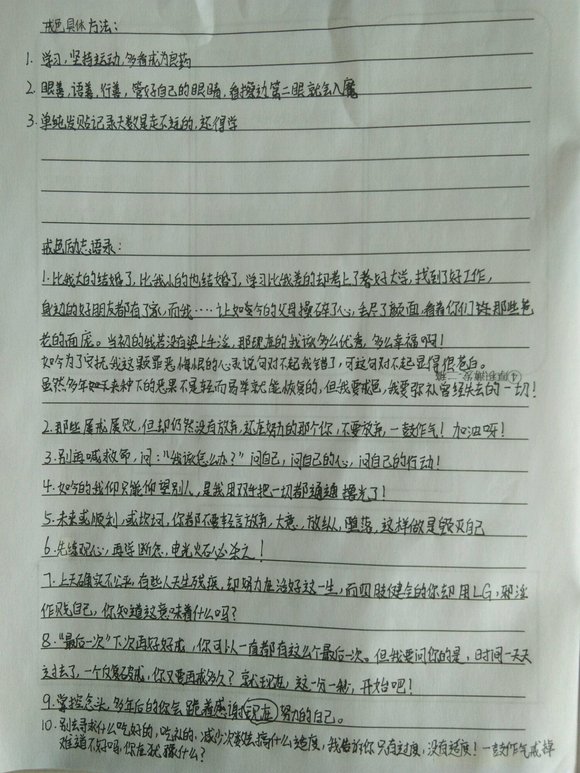 戒色具体方法：
1. 学习，坚持运动，多看戒为良药
2. 眼善，语善，行善，管好自己的眼睛，看擦边第二眼就会入魔
3. 单纯发贴记录天数是走不远的，还得学
戒色励志语录：
1. 比我大的结婚了，比我小的也结婚了，学习比我差的却考上了好大学，找到了好工作，
身边的好朋友都有了家，而我……让如今的父母操碎了心，丢尽了颜面，看着你们那些苍
老的面庞。当初的我若没有染上手淫，那现在的我该多么优秀，多么幸福啊！
如今为了守抚我这颗罪恶悔恨的心灵说句对不起我错了，可这句对不起显得很苍白。
虽然多年来种下的恶果不是轻而易举就能恢复的，但我要戒色，我要弥补曾经失去的一切！
④厚积薄发
2. 那些屡戒屡败，但却仍然没有放弃，还在努力的那个你，不要放弃，一鼓作气！加油呀！
3. 别再喊救命，问："我该怎么办？"问自己，问自己的心，问自己的行动！
4. 如今的我仰只能仰望别人，是我用双手把一切都通通撸光了！
5. 未来或顺利，或坎坷，你都不要轻言放弃，大意，放纵，堕落，这样做是毁灭自己
6. 先练观心，再学断念，电光火石必杀之！
7. 上天确实不公平，有些人天生残疾，却努力在活好这一生，而四肢健全的你却用LG，邪淫
作贱自己，你知道这意味着什么吗？
8. "最后一次"下次再好好戒，你可以一直都有这么个最后一次。但我要问你的是，时间一天天
过去了，一个劲破戒，你又要再戒多久？就现在，这一分一秒，开始吧！
9. 掌控念头，多年后的你会跪着感谢现在努力的自己。
10. 别去寻求什么吃的，吃补的，减少次数搞什么适度，我告诉你只有过度，没有适度！一鼓作气戒掉
难道不好吗，你在犹豫什么？